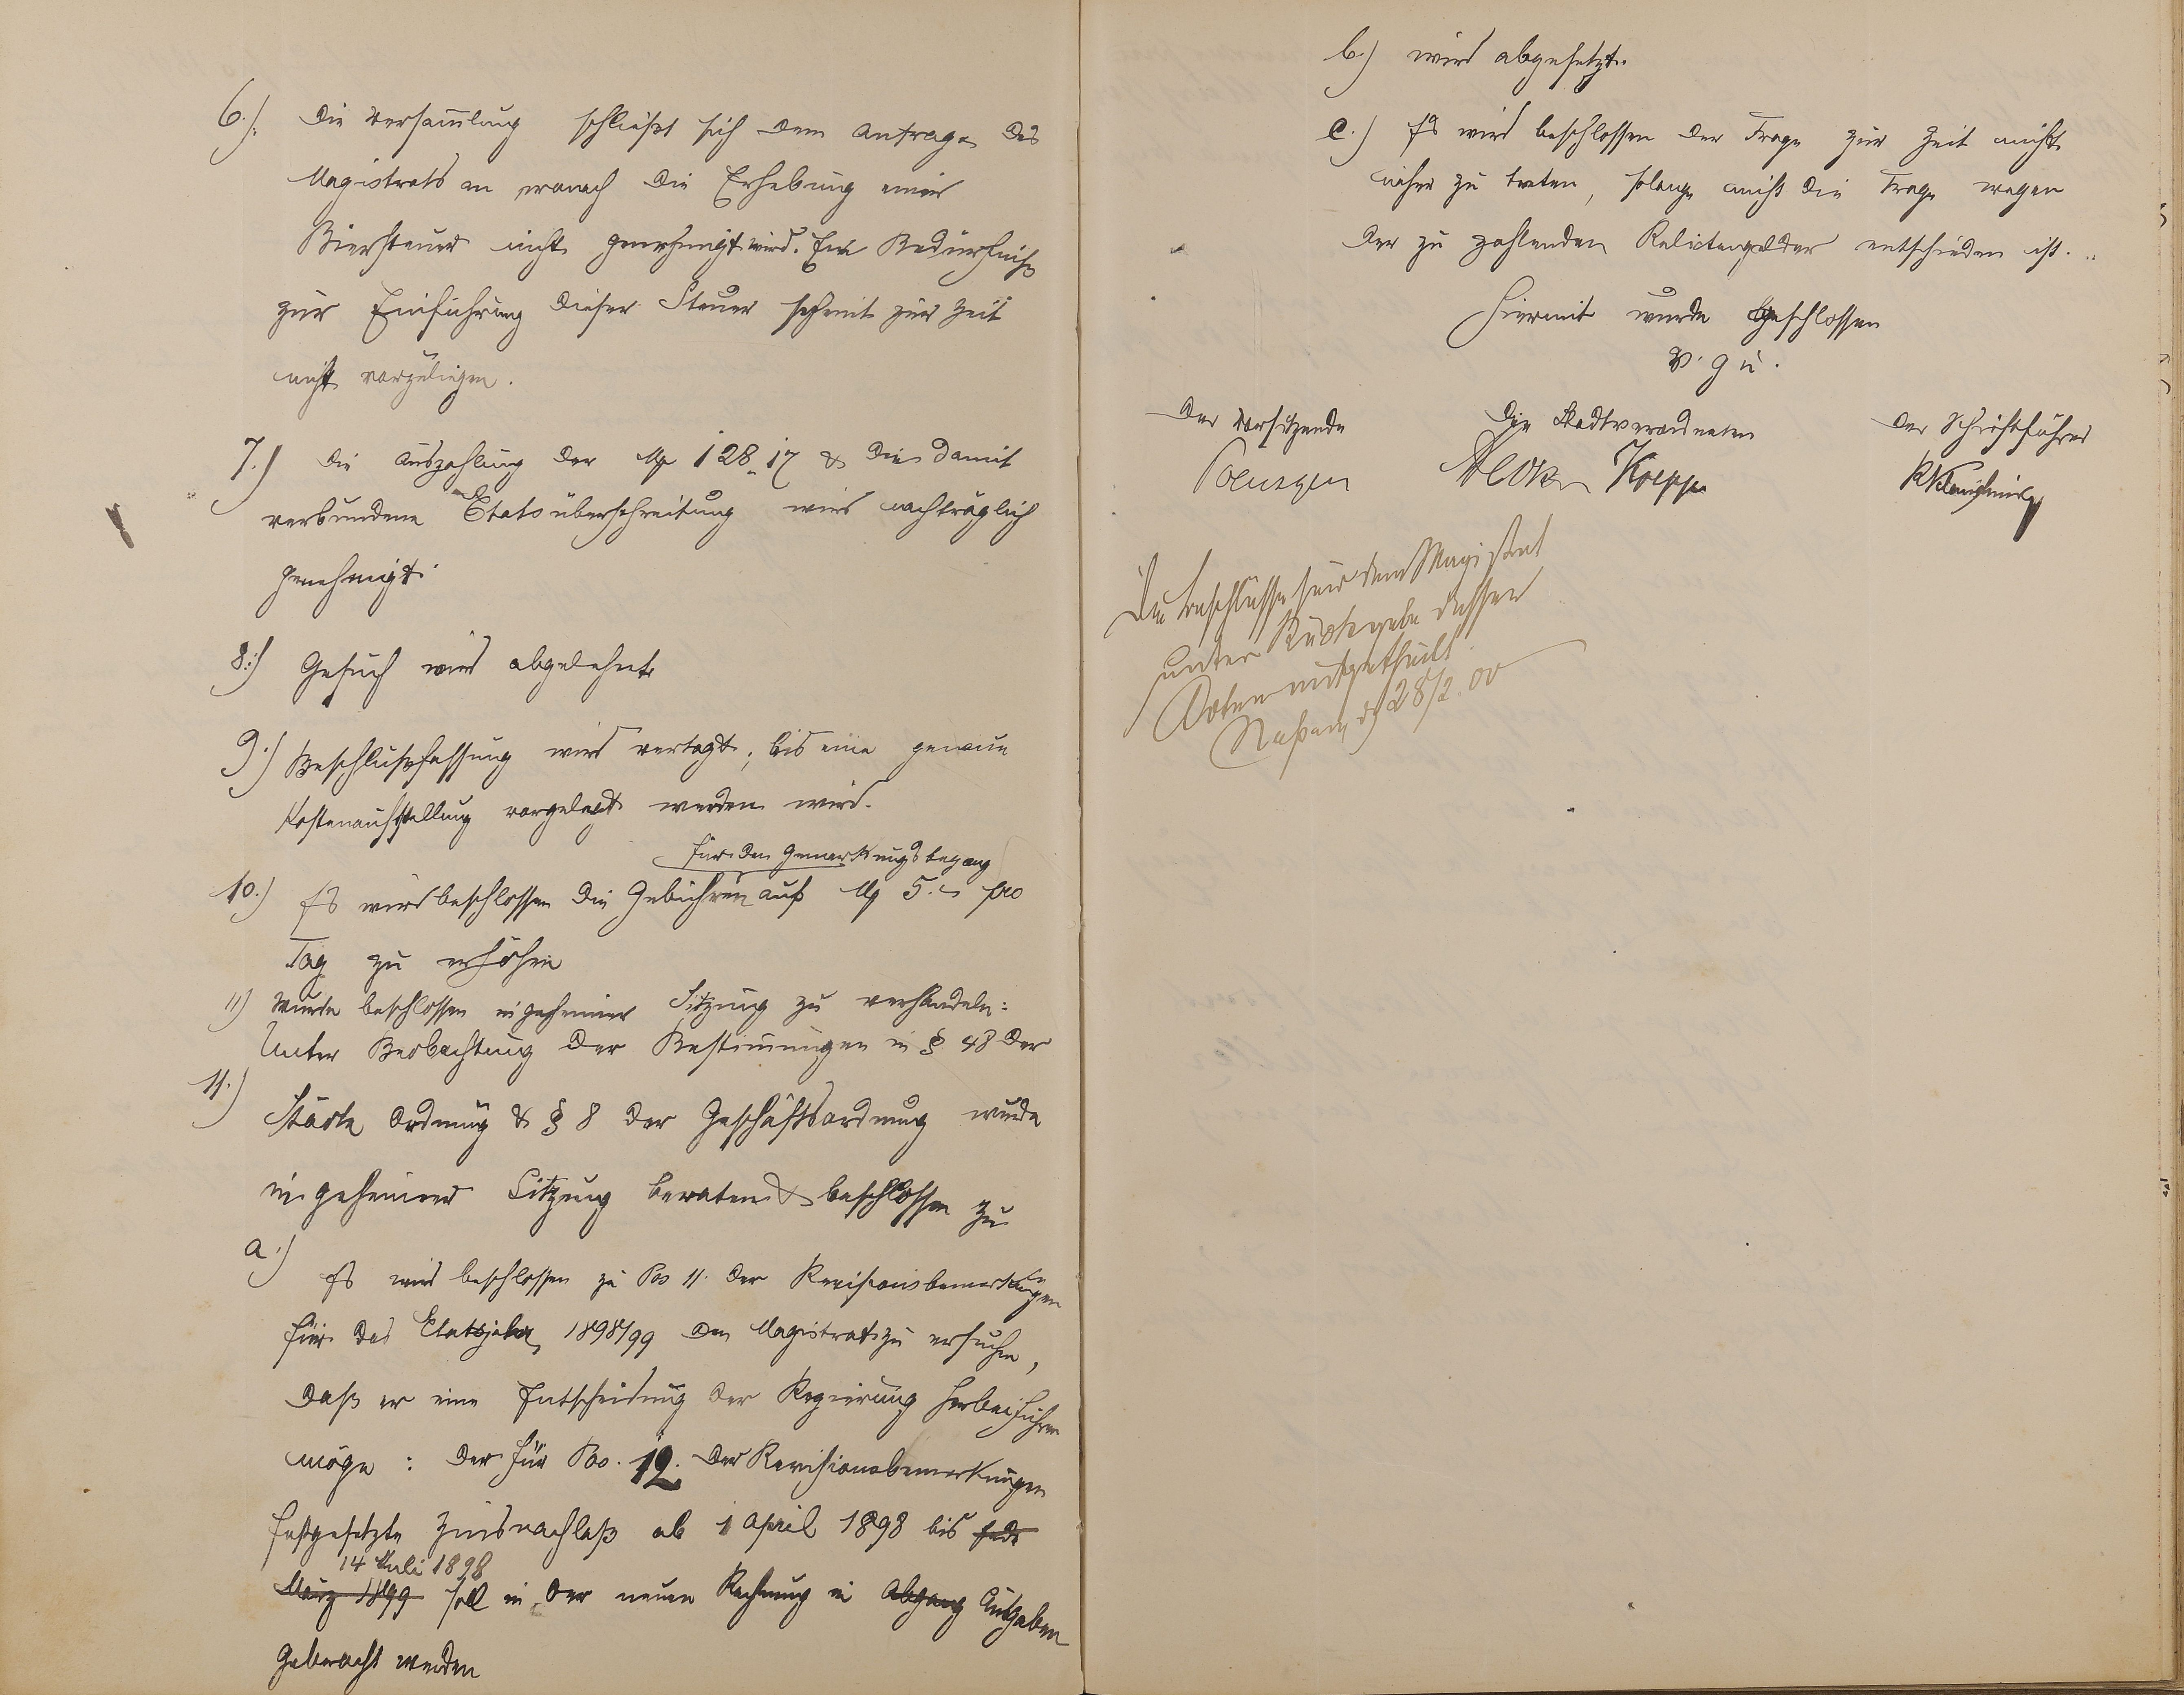 6.) Die Versammlung schließt sich dem Antrage des
Magistrats an wonach die Erhebung einer
Biersteuer nicht genehmigt wird. Ein Bedürfniß
zur Einführung dieser Steuer scheint zur Zeit
nicht vorzuliegen.
7.) Die Auszahlung der M 128.17 & die damit
verbundene Etatsüberschreitung wird nachträglich
genehmigt.
8.) Gesuch wird abgelehnt
9.) Beschlußfassung wird vertagt, bis eine genaue
Kostenaufstellung vorgelegt werden wird.
für den Gemarkungsbegang
10.) Es wird beschlossen die Gebühren auf M 5.- pro
Tag zu erhöhen
11) Wurde beschlossen in geheimer Sitzung zu verhandeln:
Unter Beobachtung der Bestimmungen in § 48 der
11.) Städte Ordnung & § 8 der Geschäftsordnung wurde
in geheimer Sitzung beraten & beschlossen zu
a.) Es wird beschlossen zu Pos 11. der Revisionsbemerkungen
für das Etatsjahr 1898/99 den Magistrat zu ersuchen,
daß er eine Entscheidung der Regierung herbeiführen
möge: Der für Pos. 12. der Revisionsbemerkungen
festgesetzte Zinsnachlaß ab 1 April 1898 bis Ende
14 Juli 1898
März 1899 soll in der neuen Rechnung in Abgang Ausgaben
gebracht werden
b.) wird abgesetzt.
c.) Es wird beschlossen der Frage zur Zeit nicht
näher zu treten, solange nicht die Frage wegen
der zu zahlenden Relictengelder entschieden ist.
Hiermit wurde geschlossen
v. g u.
Der Vorsitzende Die Stadtverordneten Der Schriftführer
Poensgen Koepp
Die Beschlüsse sind dem Magistrat
unter Rückgabe dessen
Acten mitgetheilt.
Nassau, d 28/2. 00